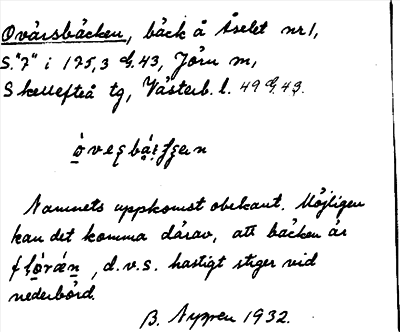 Ovärsbäcken, bäck å Åselet nr 1,
S. "7" i 175,3 G.43, Jörn m,
Skellefteå tg, Västerb. l. 49 G.43.
Namnets uppkomst obekant. Möjligen
kan det komma därav, att bäcken är
, d.v.s. hastigt stiger vid
nederbörd.
B. Nygren 1932.